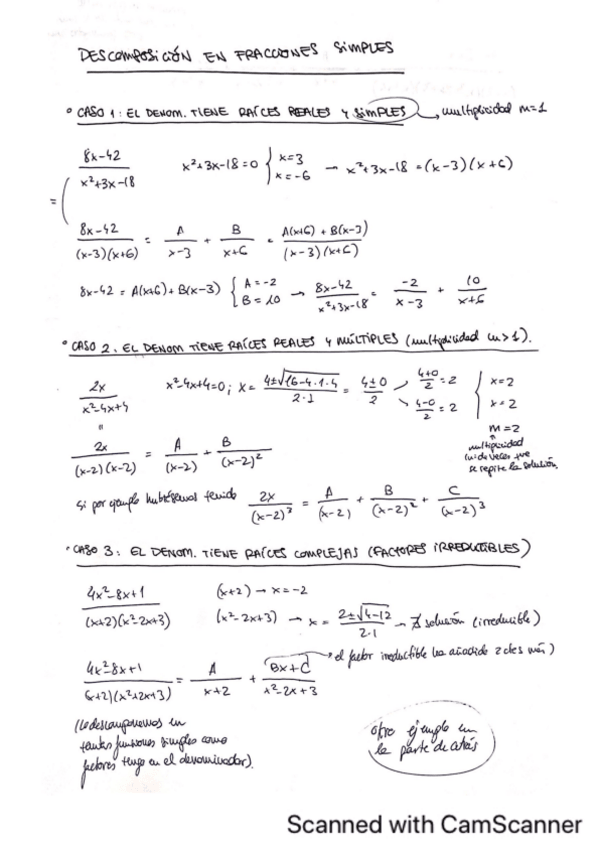 DESCOMPOSICIÓN EN FRACCIONES SIMPLES
• CASO 1: EL DENOM. TIENE RAÍCES REALES Y SIMPLES → multiplicidad m=1
(8x-42)/(x²+3x-18) x²+3x-18=0 { x=3 x=-6 → x²+3x-18 = (x-3)(x+6)
= (8x-42)/((x-3)(x+6)) = A/(x-3) + B/(x+6) = (A(x+6) + B(x-3))/((x-3)(x+6))
8x-42 = A(x+6)+B(x-3) { A=-2 B=10 → (8x-42)/(x²+3x-18) = -2/(x-3) + 10/(x+6)
• CASO 2: EL DENOM TIENE RAÍCES REALES Y MÚLTIPLES (multiplicidad m>1).
2x/(x²-4x+4) x²-4x+4=0; x = (4±√(16-4·1·4))/(2·1) = (4±0)/2 → (4+0)/2 = 2 → (4-0)/2 = 2 { x=2 x=2
m=2
multiplicidad
(nº de veces que
se repite la solución.
= 2x/((x-2)(x-2)) = A/(x-2) + B/(x-2)²
Si por ejemplo hubiésemos tenido 2x/(x-2)³ = A/(x-2) + B/(x-2)² + C/(x-2)³
• CASO 3: EL DENOM. TIENE RAÍCES COMPLEJAS (FACTORES IRREDUCTIBLES)
(4x²-8x+1)/((x+2)(x²-2x+3)) (x+2) → x=-2
(x²-2x+3) → x = (2±√(4-12))/(2·1) → ∄ solución (irreducible)
(4x²-8x+1)/((x+2)(x²+2x+3)) = A/(x+2) + (Bx+C)/(x²-2x+3) → el factor irreductible ha añadido 2 ctes más)
(Lo descomponemos en
tantas funciones simples como
factores tengo en el denominador).
otro ejemplo en
la parte de atrás
Scanned with CamScanner